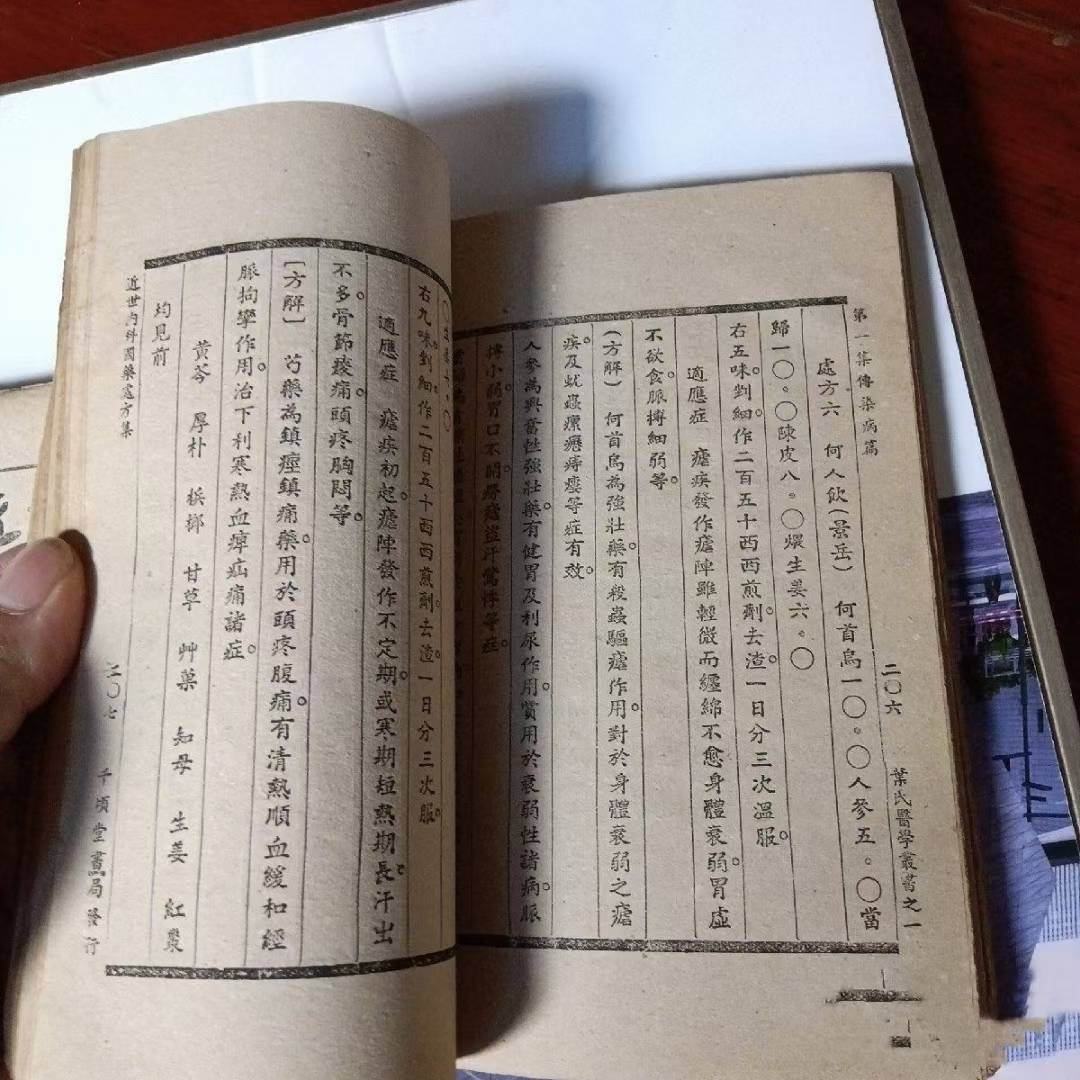 第一集傳染病篇
二〇六
葉氏醫學叢書之一
處方六　何人飲(景岳)　何首烏一〇.〇人參五.〇當
歸一〇.〇陳皮八.〇煨生姜六.〇
右五味剉細作二百五十西西煎劑去渣。一日分三次溫服。
適應症　瘧疾發作瘧陣雖輕微而纏綿不愈身體衰弱。胃虛
不欲食。脈搏細弱等。
(方解)　何首烏為強壯藥。有殺蟲驅瘧作用。對於身體衰弱之瘧
疾及蚘蟲瘰癧痔瘻等症有效。
人參為興奮性強壯藥。有健胃及利尿作用。賞用於衰弱性諸病。脈
搏小弱。胃口不開。癆瘵盜汗驚悸等症。
右九味。剉細。作二百五十西西煎劑去渣。一日分三次服。
適應症　瘧疾初起。瘧陣發作不定期。或寒期短熱期長。汗出
不多。骨節痠痛。頭疼胸悶等。
〔方解〕　芍藥為鎮痙鎮痛藥。用於頭疼腹痛。有清熱順血緩和經
脈拘攣作用。治下利寒熱血痺疝痛諸症。
黃芩　厚朴　梹榔　甘草　艸菓　知母　生姜　紅棗
均見前
近世內科國藥處方集
二〇七
千頃堂書局發行